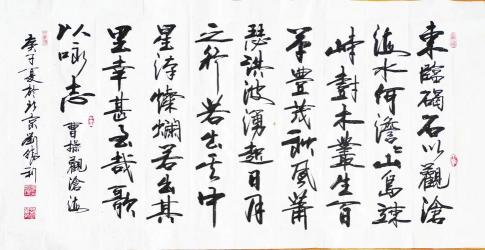 東臨碣石以觀滄
海水何澹〻山島竦
峙樹木叢生百
草豐茂秋風蕭
瑟洪波湧起日月
之行若出其中
星漢燦爛若出其
里幸甚至哉歌
以咏志
曹操觀滄海
庚子夏於北京劉利